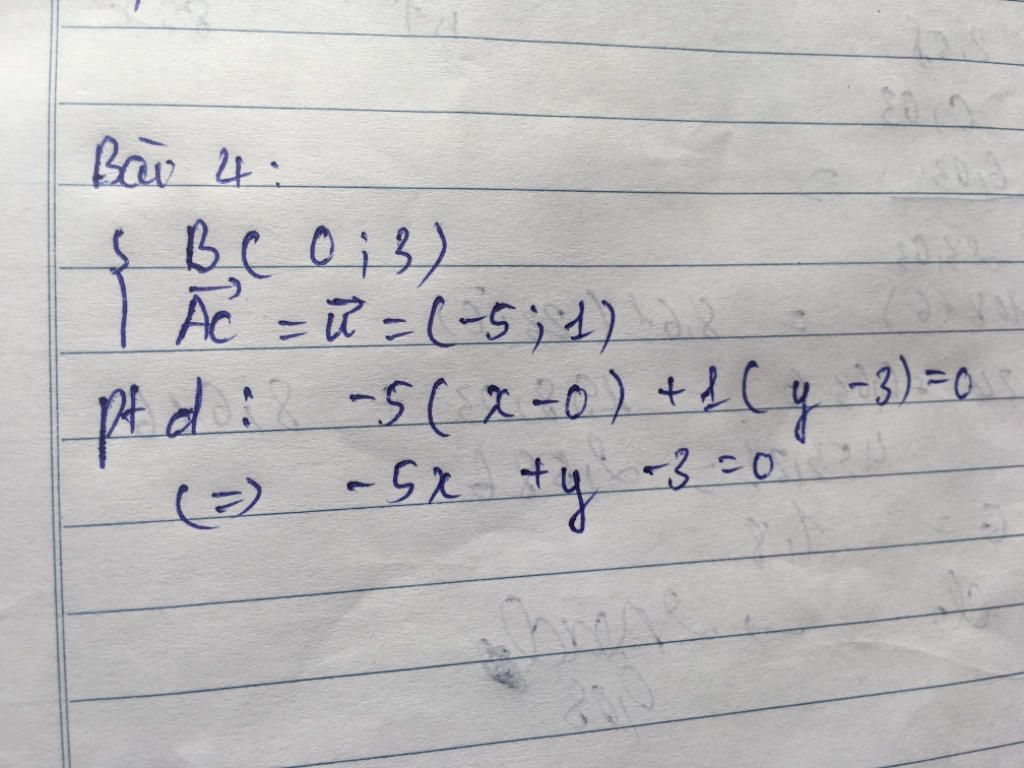 Bài 4:
{ B( 0 ; 3)
AC→ = u→ = (-5; 1)
pt d: -5( x - 0) + 1( y - 3) = 0
(=) -5x + y - 3 = 0